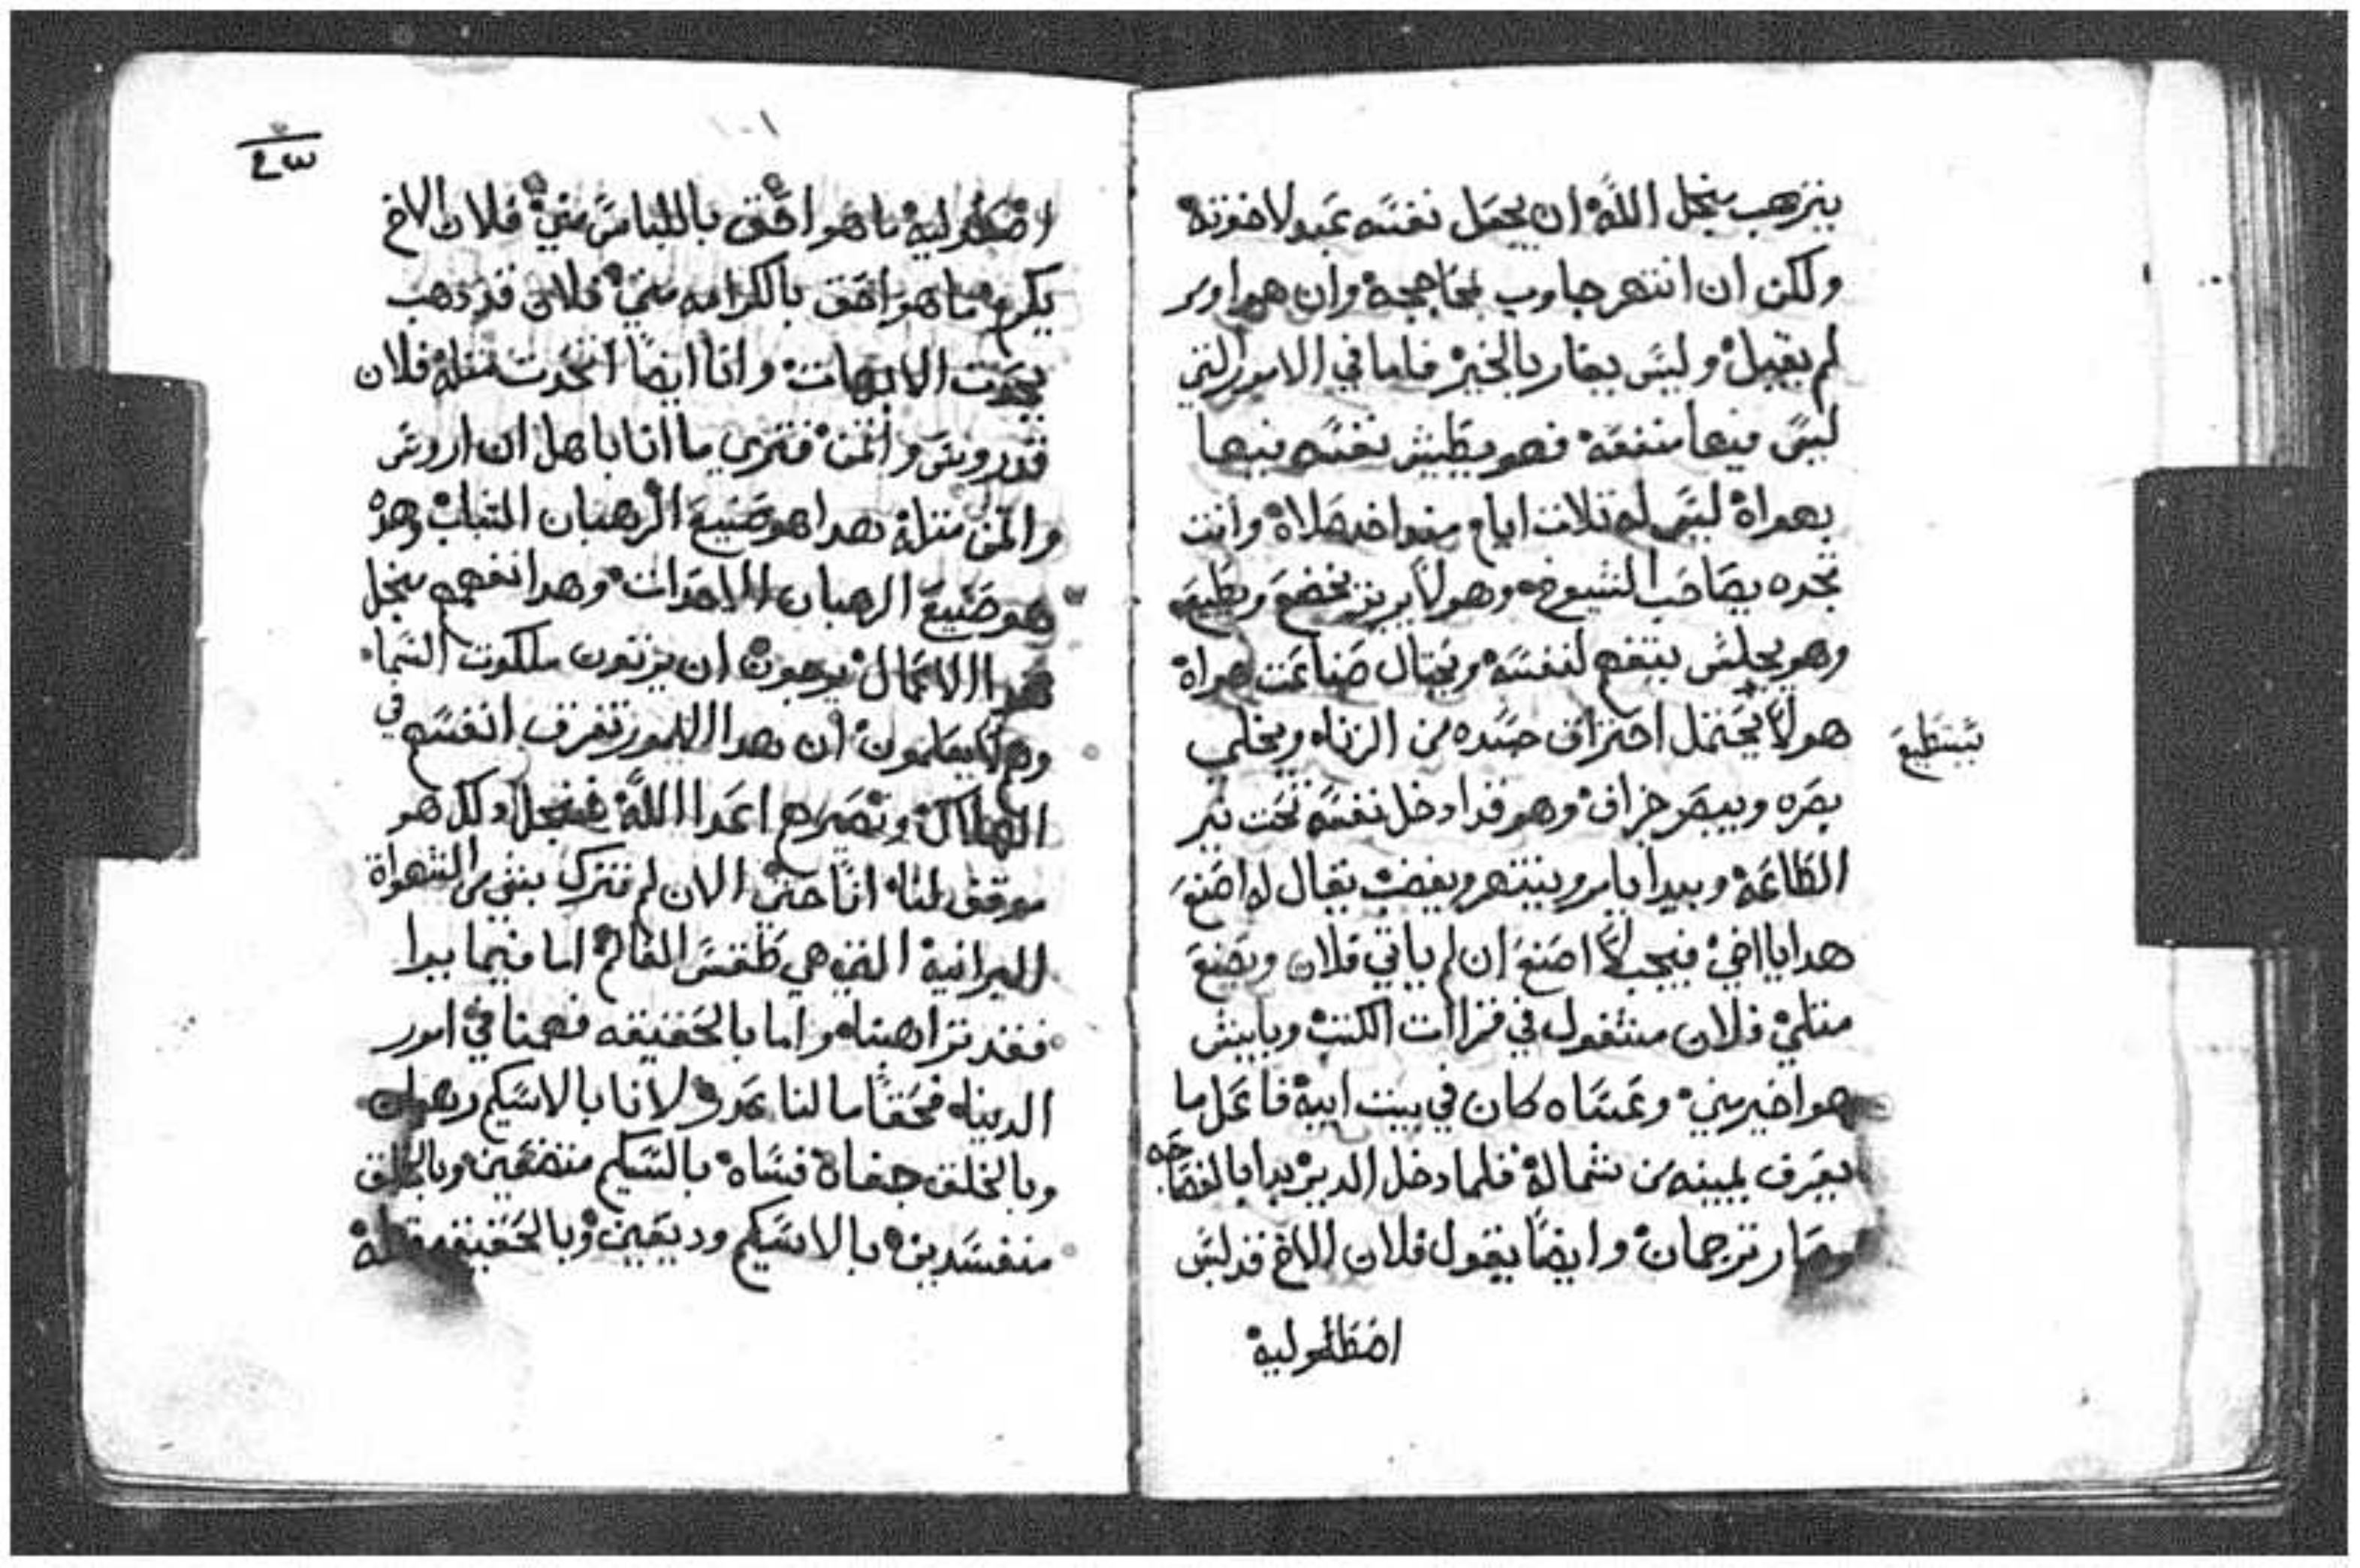 يترهب منجل الله ان يجعل نفسه عبد لاخوته
ولكن ان انتهر جاوب بمحاججة وان هو اومر
لم يقبل وليس يغار بالخير فاما في الامور التي
ليس فيها منفعة فهو يطيش نفسه فيها
بهواة ليس له تلات ايام منداخد صلاة وانت
تجده يصاحب الشيوخ وهو لا يريد يخضع ويطيع
وهو يجلس يتفهم لنفسه ويحتال صناعت هواة
هو لا يحتمل احتراق جسده من الزنا ويخلي
يستطيع
بصره ويبصر جزاف وهو قد ادخل نفسه تحت نير
الطاعة ويبدا يامر وينتهر ويغضب يقال له اصنع
هدا يا اخي فيجيب لا اصنع ان لم ياتي فلان ويصنع
متلي فلان مشغول في قراات الكتب وبايش
هو اخير مني وعساه كان في بيت ابية فاعل ما
يعرف يمينه من شماله فلما دخل الدير بدا بالفصاحه
وصار ترجمان وايضا يقول فلان الاخ قد لبس
اضطوليه
١٠١
٤٣
اضطوليه ما هو احق باللباس مني فلان الاخ
يكرم ما هو احق بالكرامه مني فلان قد ذهب
يحدت الابهات وانا ايضا اتحدت متله فلان
قد روس واتمن فترى ما انا باهل ان اروس
واتمن متله هدا هو صنيع الرهبان الشباب وهدا
هو صنيع الرهبان الاحدات وهدا انفهم منجل
هدا الاعمال يرجون ان يرتون ملكوت السما
وهم لا يعلمون ان هدا الامور تغرق انفسهم في
الهلاك وتصيرهم اعدا الله فمنجل دلك هو
موقف لنا انا حتى الان لم نترك بشي من الشهواة
البرانية التي هي طقس العالم اما فيما يبدا
فقد تراهبنا واما بالحقيقه فهمنا في امور
الدينا فحقا ما لنا عدر لانا بالاسكيم رهبان
وبالخلق جفاة قساه بالسكيم متضعين وبالخلق
منفسدين بالاسكيم وديعين وبالحقيقه قتلة